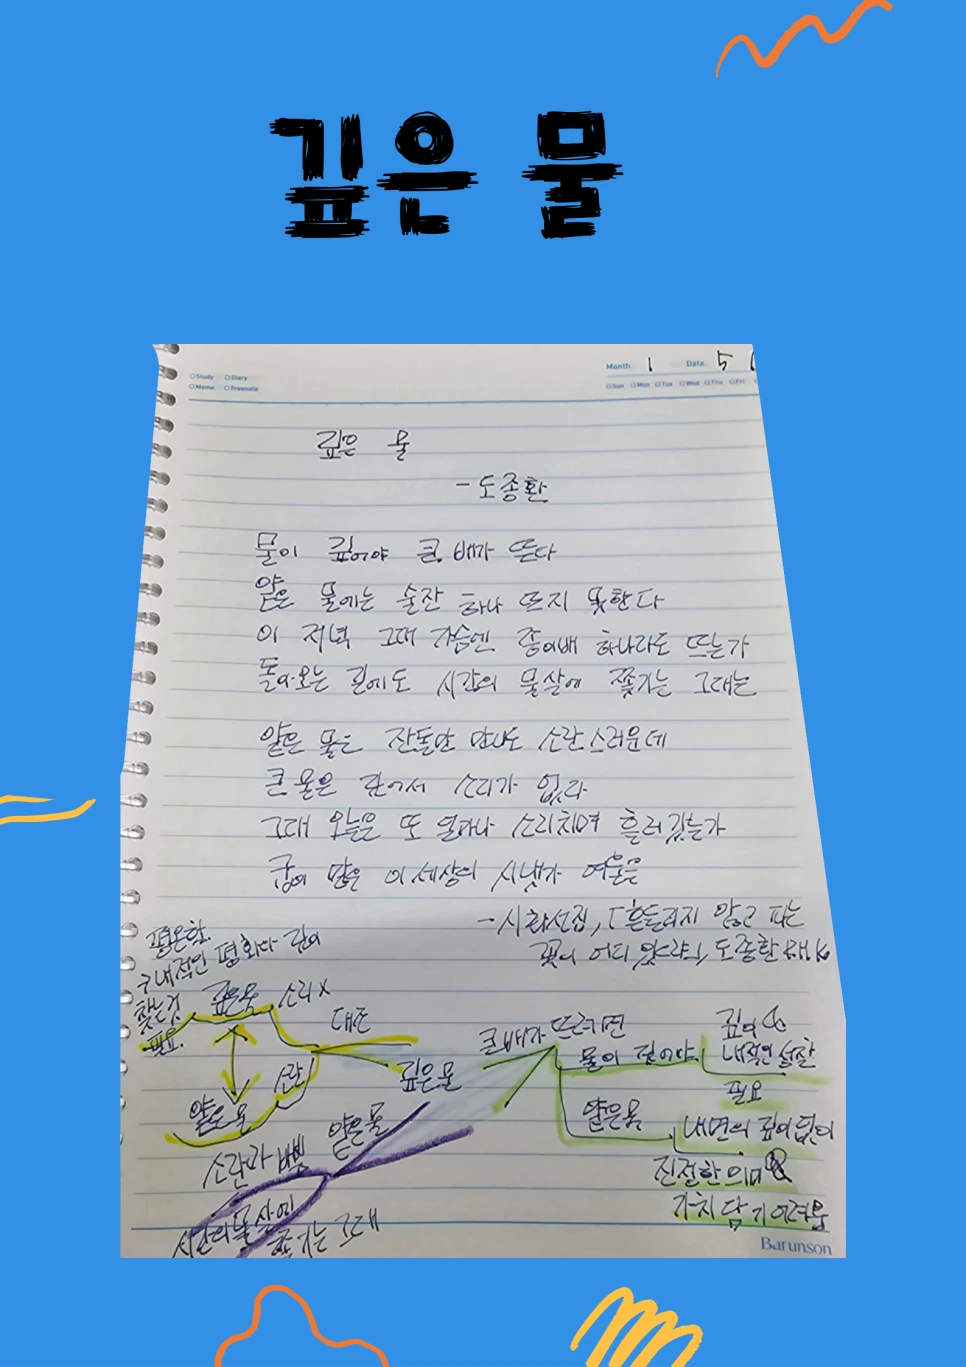 깊은 물
Study Diary
Memo Freenote
Month. 1 Date. 5
Sun Mon Tue Wed Thu Fri
깊은 물
- 도종환
물이 깊어야 큰 배가 뜬다
얕은 물에는 술잔 하나 뜨지 못한다
이 저녁 그대 가슴엔 종이배 하나라도 뜨는가
돌아오는 길에도 시간의 물살에 쫓기는 그대는
얕은 물은 잔돌만 만나도 소란스러운데
큰 물은 깊어서 소리가 없다
그대 오늘은 또 얼마나 소리치며 흘러갔는가
굽이 많은 이 세상의 시냇가 여울을
- 시화선집, 「흔들리지 않고 피는
꽃이 어디 있으랴」, 도종환
평온함.
내적인 평화와 깊이
찾는 것
필요.
깊은 물 소리 x
대조
소란
얕은 물
깊은 물
얕은 물
소란과 바쁨
시간의 물살에
쫓기는 그대
큰 배가 뜨려면
물이 깊어야
깊이
내적인 성찰
필요
얕은 물
내면의 깊이 없이
진정한 의미
가치 담기 어려움
Barunson